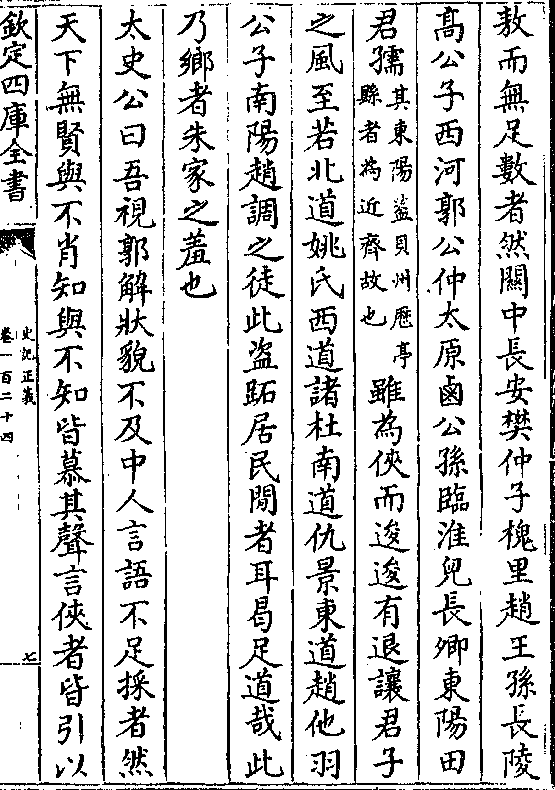 敖而無足數者然關中長安樊仲子槐里趙王孫長陵
髙公子西河郭公仲太原鹵公孫臨淮兒長卿東陽田
君孺其東陽盖貝州歴亭縣者為近齊故也雖為俠而逡逡有退讓君子
之風至若北道姚氏西道諸杜南道仇景東道趙他羽
公子南陽趙調之徒此盗跖居民間者耳曷足道哉此
乃鄉者朱家之羞也
太史公曰吾視郭解狀貌不及中人言語不足採者然
天下無賢與不肖知與不知皆慕其聲言俠者皆引以
欽定四庫全書
史記正義
卷一百二十四
七